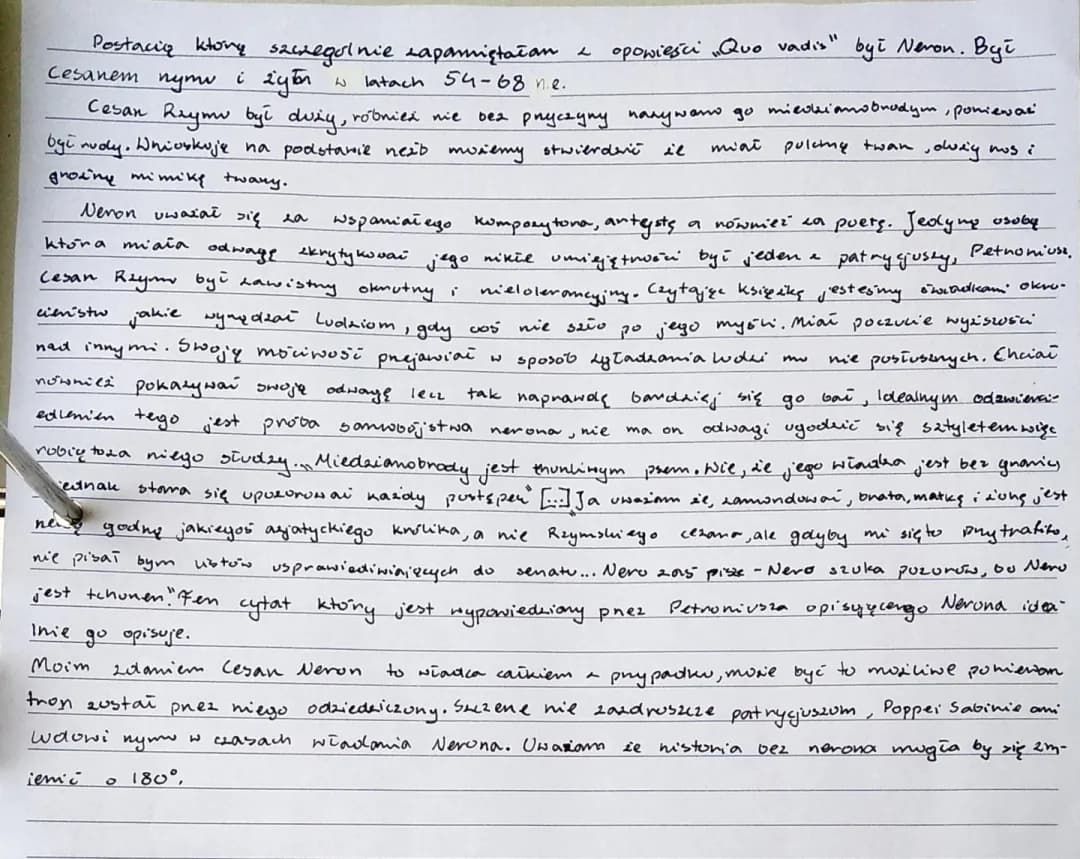 Postacią którą szczególnie zapamiętałam z opowieści „Quo vadis" był Neron. Był
Cesarzem rzymu i żył w latach 54-68 n.e.
Cezar Rzymu był duży, również nie bez przyczyny nazywano go miedzianobrodym, ponieważ
był rudy. Wnioskuję na podstawie rzeźb możemy stwierdzić że miał pulchną twarz, duży nos i
groźną mimikę twarzy.
Neron uważał się za wspaniałego kompozytora, artystę a również za poetę. Jedyną osobą
która miała odwagę skrytykować jego nikłe umiejętności był jeden z patrycjuszy, Petroniusz.
Cezar Rzymu był zawistny okrutny i nietolerancyjny. Czytając książkę jesteśmy świadkami okru-
cieństw jakie wyrządzał ludziom, gdy coś nie szło po jego myśli. Miał poczucie wyższości
nad innymi. Swoją mściwość przejawiał w sposób zgładzania ludzi mu nie posłusznych. Chciał
również pokazywać swoją odwagę lecz tak naprawdę bardziej się go bał, Idealnym odzwierci-
edleniem tego jest próba samobójstwa nerona, nie ma on odwagi ugodzić się sztyletem więc
robią to za niego słudzy. „Miedzianobrody jest thurliwym psem. Wie, że jego władza jest bez granicy
jednak stara się upozorować każdy postępek" [...] Ja uważam że, zamordować, brata, matkę i żonę jest
godną jakiegoś azjatyckiego królika, a nie Rzymskiego cezara, ale gdyby mi się to przytrafiło,
nie pisał bym listów usprawiedliwiających do senatu... Nero zaś pisze - Nero szuka pozorów, bo Nero
jest tchórzem." Ten cytat który jest wypowiedziany przez Petroniusza opisującego Nerona idea-
lnie go opisuje.
Moim zdaniem Cezar Neron to władca całkiem z przypadku, może być to możliwe ponieważ
tron został przez niego odziedziczony. Szczerze nie zazdroszczę patrycjuszom, Poppei Sabinie ani
ludowi rzymu w czasach władania Nerona. Uważam że historia bez nerona mogła by się zm-
ienić o 180°.